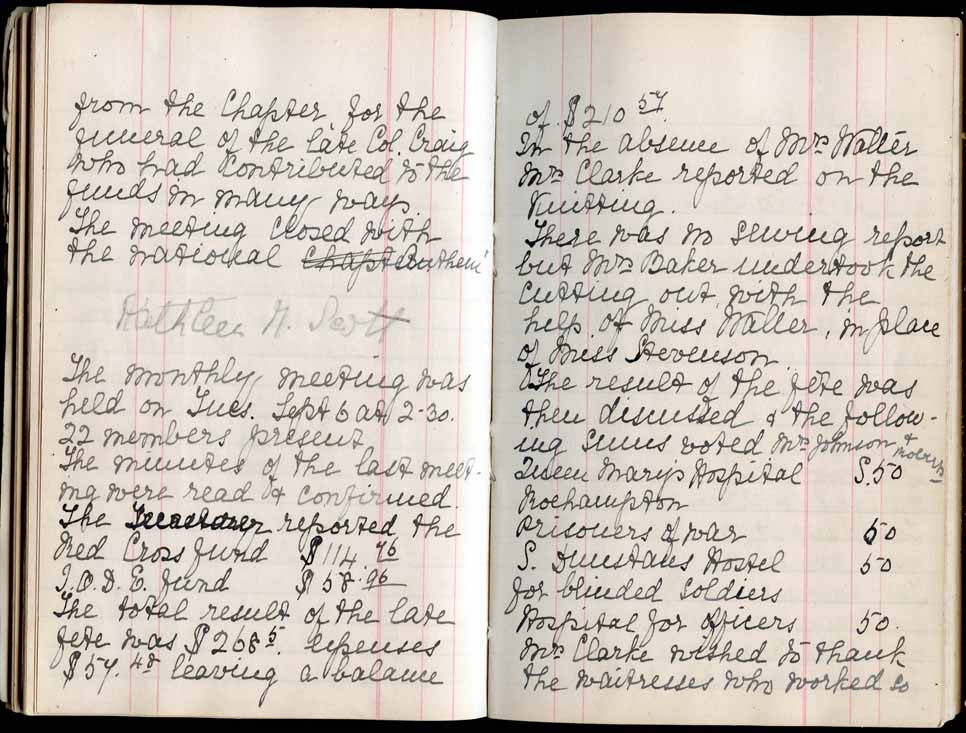 from the Chapter for the
funeral of the late Col. Craig
who had contributed to the
funds in many ways
The meeting closed with
the national Chapt Anthem
Kathleen N. Scott
The monthly meeting was
held on Tues. Sept 6 at 2-30.
22 members present
The minutes of the last meet-
ing were read & confirmed.
The Treasurer reported the
Red Cross fund $114.76
I.O.D.E. fund $58.96
The total result of the late
fete was $268.5. expenses
$57.48 leaving a balance
of $210 57.
In the absence of Mrs Waller
Mrs Clarke reported on the
Knitting.
There was no sewing report
but Mrs Baker undertook the
cutting out with the
help of Miss Waller, in place
of Miss Stevenson.
The result of the fête was
then discussed & the follow-
ing sums voted Mrs Johnson &
Queen Marys Hospital $.50
Roehampton
Prisoners of war 50
S. Dunstans Hostel 50
for blinded soldiers
Hospital for officers 50.
Mrs Clarke wished to thank
the waitresses who worked so